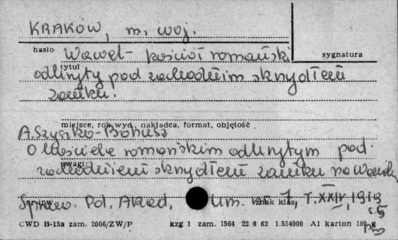 KRAKÓW, m. woj.
hasło Wawel - kościół romański sygnatura
tytuł
odkryty pod zachodniem skrzydłem
zamku.
miejsce, rok wyd., nakładca, format, objętość
A. Szyszko-Bohusz
O kościele romańskim odkrytym pod
uwagi
zachodniem skrzydłem zamku na Wawelu,
Spraw. Pol. Akad. Um. znak klas. 7, T. XXIV, 1919
CWD B-15a zam. 2006/ZW/P kzg 1 zam. 1564 22 6 62 1.554000 A1 karton